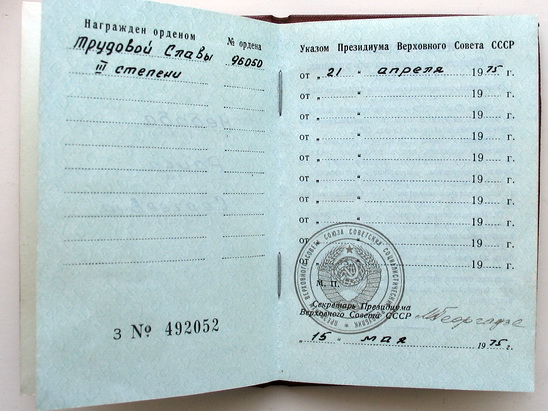 Награжден орденом
№ ордена
Трудовой Славы 96050
III степени
З № 492052
Указом Президиума Верховного Совета СССР
от „ 21 “ апреля 1975 г.
от „ “ 19 г.
от „ “ 19 г.
от „ “ 19 г.
от „ “ 19 г.
от „ “ 19 г.
от „ “ 19 г.
от „ “ 19 г.
от „ “ 19 г.
19 г.
М. П.
Секретарь Президиума
Верховного Совета СССР М Георгадзе
„ 15 “ мая 1975 г.